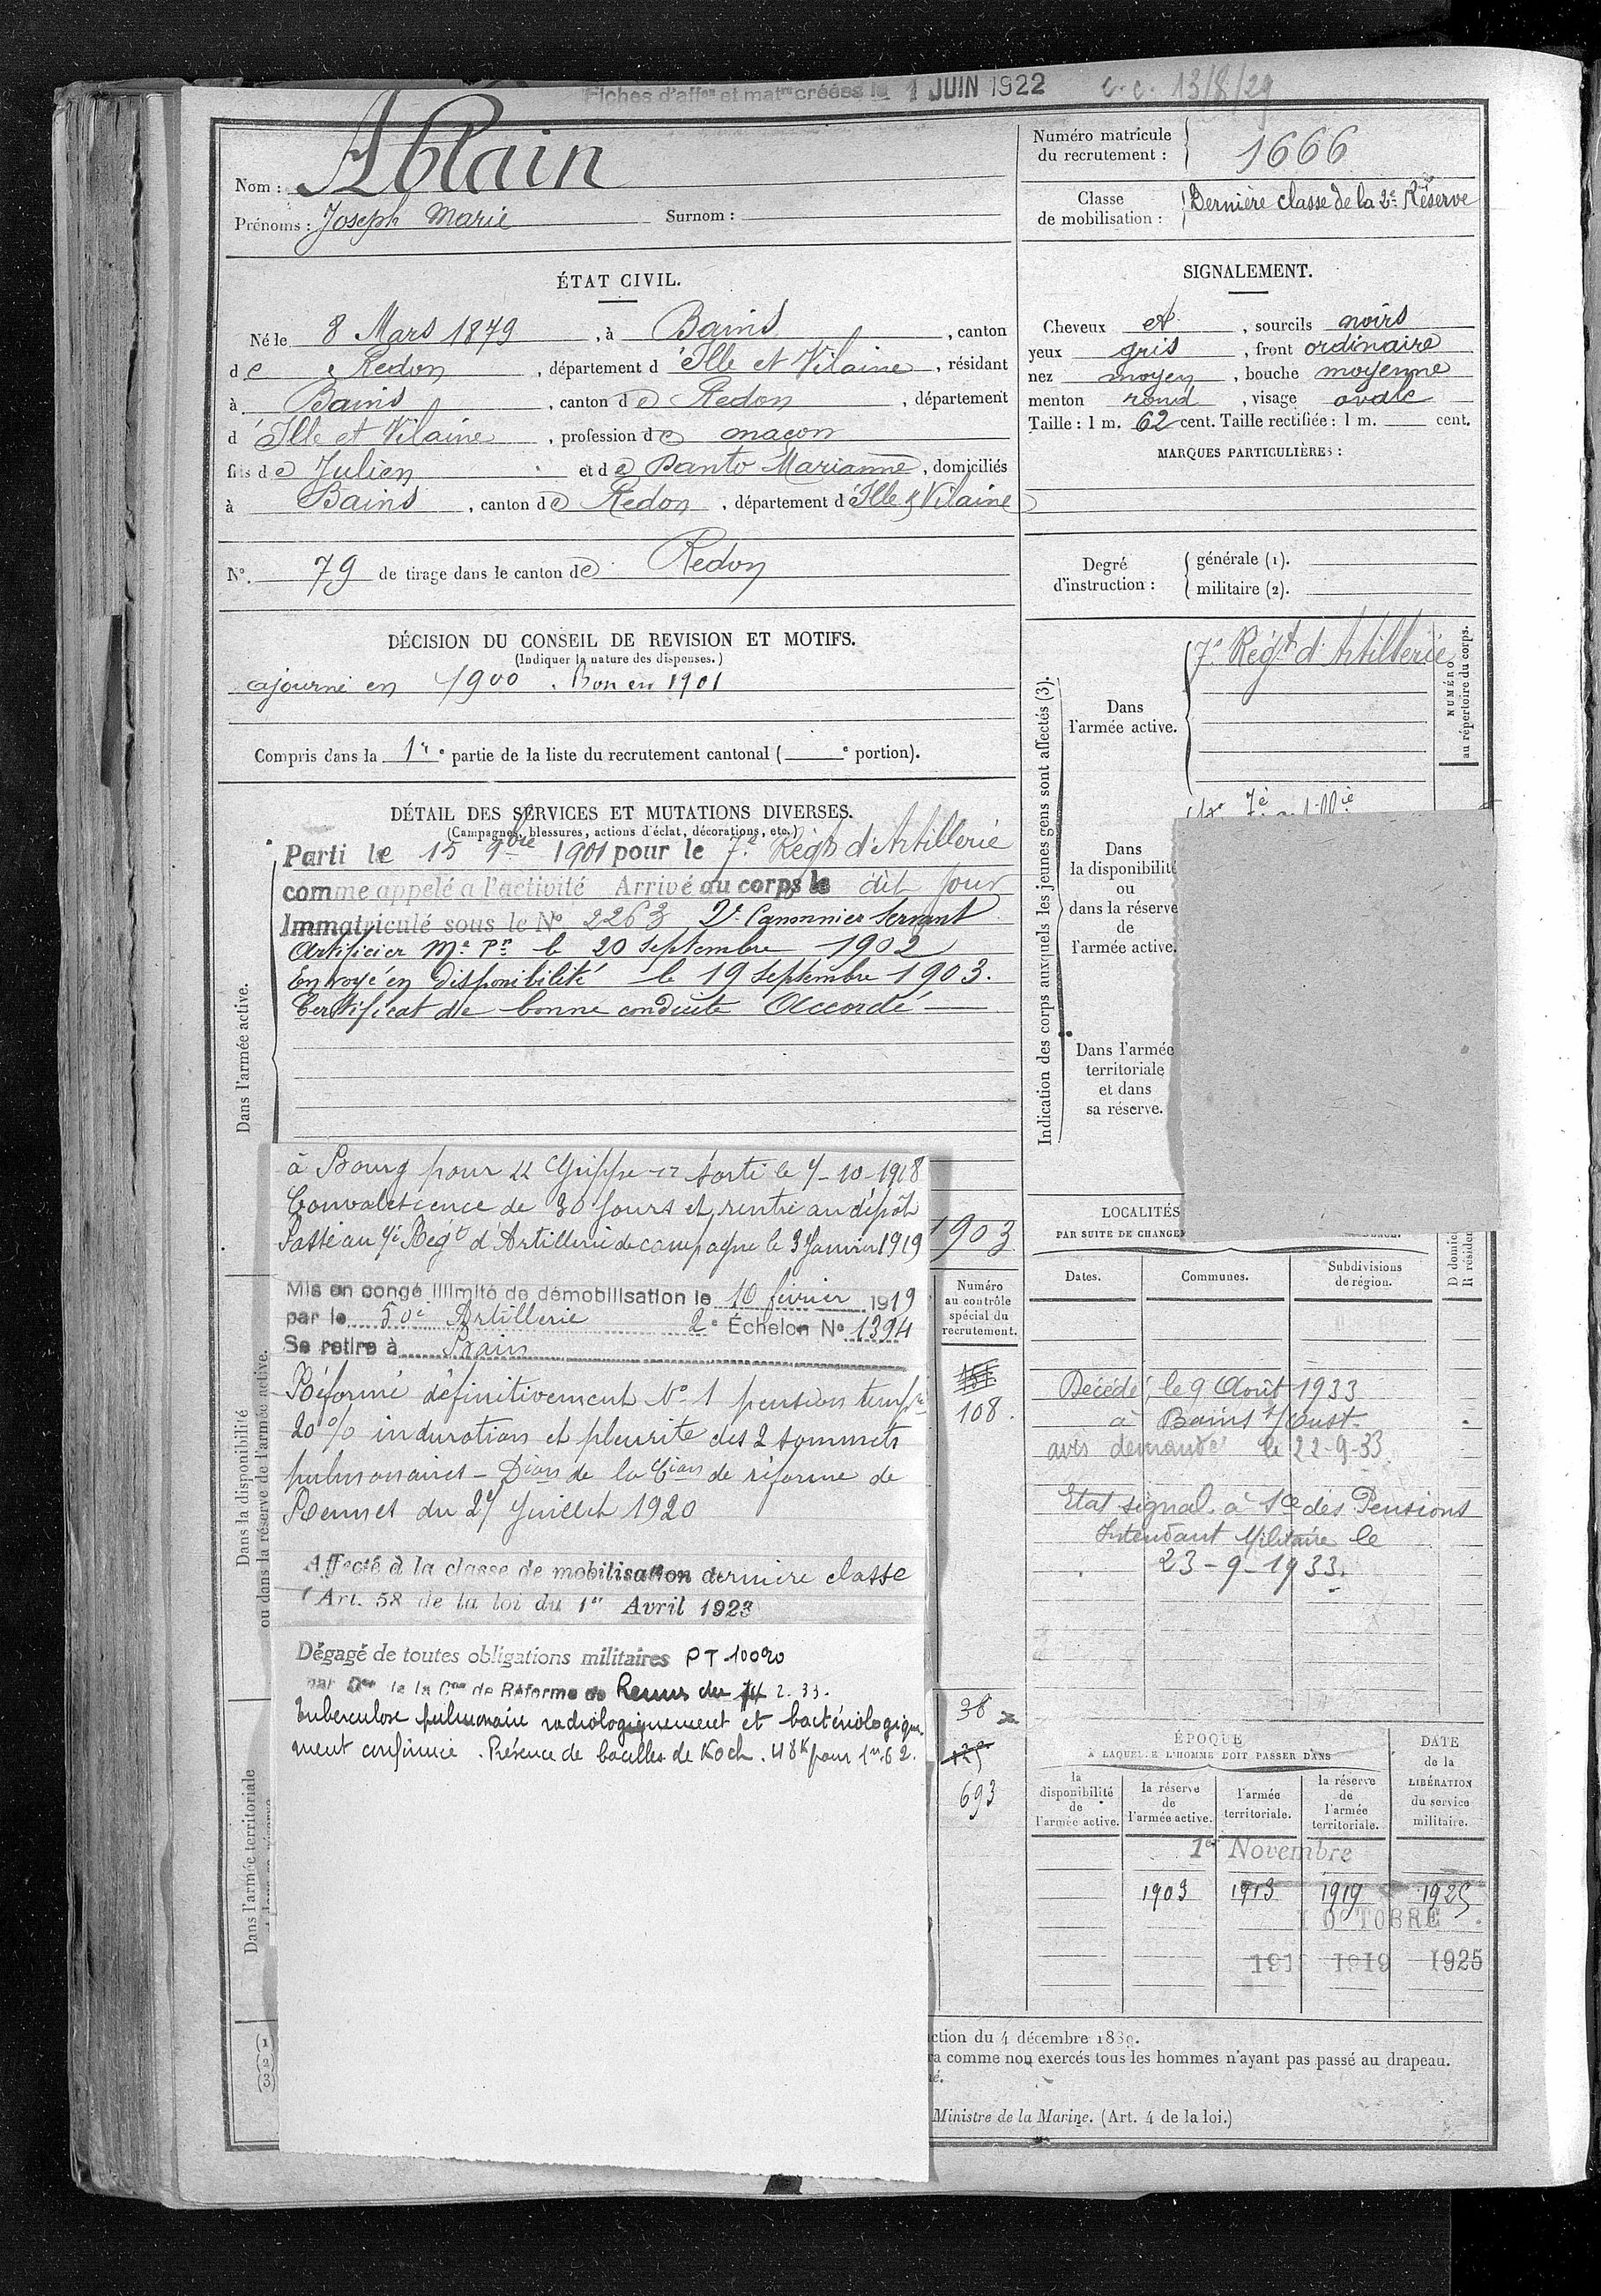 Fiches d'affon et matre créées le 1 JUIN 1922 c.c. 13/8/29
Nom : Ablain
Prénoms : Joseph Marie Surnom :
Numéro matricule
du recrutement : 1666
Classe
de mobilisation : Dernière classe de la 2e Réserve
ÉTAT CIVIL.
Né le 8 Mars 1879, à Bains, canton
de Redon, département d'Ille et Vilaine, résidant
à Bains, canton de Redon, département
d'Ille et Vilaine, profession de maçon
fils de Julien et de Danto Marianne, domiciliés
à Bains, canton de Redon, département d'Ille & Vilaine
N° 79 de tirage dans le canton de Redon
SIGNALEMENT.
Cheveux et, sourcils noirs
yeux gris, front ordinaire
nez moyen, bouche moyenne
menton rond, visage ovale
Taille : 1 m. 62 cent. Taille rectifiée : 1 m. cent.
MARQUES PARTICULIÈRES :
Degré
d'instruction :
générale (1).
militaire (2).
DÉCISION DU CONSEIL DE REVISION ET MOTIFS.
(Indiquer la nature des dispenses.)
ajourné en 1900. Bon en 1901
Compris dans la 1re partie de la liste du recrutement cantonal ( e portion).
DÉTAIL DES SERVICES ET MUTATIONS DIVERSES.
(Campagnes, blessures, actions d'éclat, décorations, etc.)
Dans l'armée active.
Parti le 15 9bre 1901 pour le 7e Régt d'Artillerie
comme appelé à l'activité Arrivé au corps le dit jour
Immatriculé sous le N° 2263 2e Canonnier Servant
Artificier Me Pr le 20 Septembre 1902
Envoyé en disponibilité le 19 Septembre 1903.
Certificat de bonne conduite Accordé
à Bourg pour "Grippe" sorti le 7-10-1918
Convalescence de 30 jours et rentré au dépôt
Passé au 7e Régt d'Artillerie de campagne le 3 Janvier 1919
1903
Mis en congé illimité de démobilisation le 10 février 1919
par le 50e Artillerie 2e Échelon N° 1394
Se retire à Bains
Réformé définitivement No 1 pension tempre
20% induration et pleurite des 2 sommets
pulmonaires - Dion de la Cion de réforme de
Rennes du 27 Juillet 1920
Affecté à la classe de mobilisation dernière classe
(Art. 58 de la loi du 1er Avril 1923)
Dégagé de toutes obligations militaires PT 100%
par Don de la Con de Réforme de Rennes du 14 2.33.
Tuberculose pulmonaire radiologiquement et bactériologique
ment confirmée. Présence de bacilles de Koch. 48k pour 1m62.
Dans la disponibilité
ou dans la réserve de l'armée active.
Dans l'armée territoriale
(1)
(2)
(3)
Numéro
au contrôle
spécial du
recrutement.
108.
38
125
693
Indication des corps auxquels les jeunes gens sont affectés (3).
Dans
l'armée active.
7e Régt d'Artillerie
NUMÉRO
au répertoire du corps.
Dans
la disponibilité
ou
dans la réserve
de
l'armée active.
Dans l'armée
territoriale
et dans
sa réserve.
LOCALITÉS
PAR SUITE DE CHANGE
Dates.
Communes.
Subdivisions
de région.
D domic
R résiden
Décédé le 9 Août 1933
à Bains s/Oust.
avis demandé le 22-9-33
Etat signal. à Sce des Pensions
Intendant Militaire le
23-9-1933.
ÉPOQUE
À LAQUELLE L'HOMME DOIT PASSER DANS
la
disponibilité
de
l'armée active.
la réserve
de
l'armée active.
l'armée
territoriale.
la réserve
de
l'armée
territoriale.
DATE
de la
LIBÉRATION
du service
militaire.
1er Novembre
1903 1913 1919 1925
1 OCTOBRE
191 1919 1925
ction du 4 décembre 1889.
ra comme non exercés tous les hommes n'ayant pas passé au drapeau.
é.
Ministre de la Marine. (Art. 4 de la loi.)